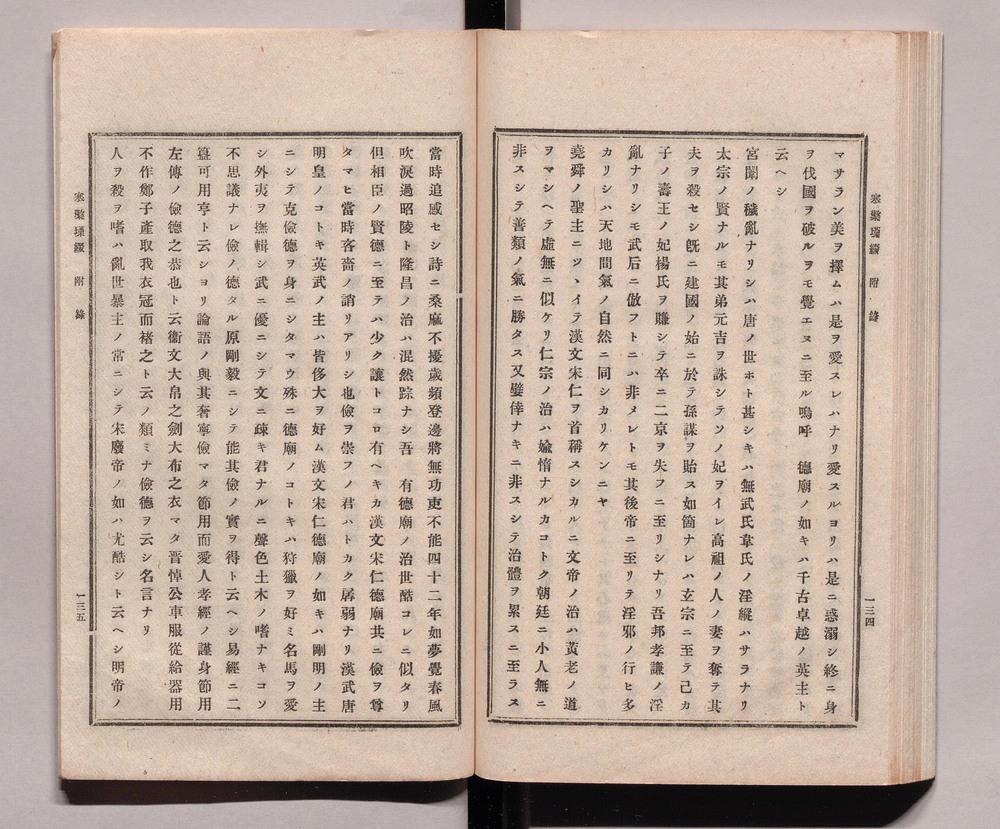 寒檠璅綴　附　錄
一三四
マサラン美ヲ擇ムハ是ヲ愛スレハナリ愛スルヨリハ是ニ惑溺シ終ニ身
ヲ伐國ヲ破ルヲモ覺エヌニ至ル嗚呼　德廟ノ如キハ千古卓越ノ英主ト
云ヘシ
宮闈ノ穢亂ナリシハ唐ノ世ホト甚シキハ無武氏韋氏ノ淫縱ハサラナリ
太宗ノ賢ナルモ其弟元吉ヲ誅シテソノ妃ヲイレ高祖ノ人ノ妻ヲ奪テ其
夫ヲ殺セシ旣ニ建國ノ始ニ於テ孫謀ヲ貽ス如箇ナレハ玄宗ニ至テ己カ
子ノ壽王ノ妃楊氏ヲ賺シテ卒ニ二京ヲ失フニ至リシナリ吾邦孝謙ノ淫
亂ナリシモ武后ニ倣フトニハ非メレトモ其後帝ニ至リテ淫邪ノ行ヒ多
カリシハ天地間氣ノ自然ニ同シカリケンニヤ
堯舜ノ聖主ニツヽイテ漢文宋仁ヲ首稱スシカルニ文帝ノ治ハ黃老ノ道
ヲマシヘテ虛無ニ似ケリ仁宗ノ治ハ媮惰ナルカコトク朝廷ニ小人無ニ
非スシテ善類ノ氣ニ勝タス又嬖倖ナキニ非スシテ治體ヲ累スニ至ラス
當時追感セシ詩ニ桑麻不擾歲頻登邊將無功吏不能四十二年如夢覺春風
吹淚過昭陵ト隆昌ノ治ハ混然踪ナシ吾　有德廟ノ治世酷コレニ似タリ
但相臣ノ賢德ニ至テハ少ク讓トコロ有ヘキカ漢文宋仁德廟共ニ儉ヲ尊
タマヒ當時吝嗇ノ誚リアリシ也儉ヲ崇フノ君ハトカク孱弱ナリ漢武唐
明皇ノコトキ英武ノ主ハ皆侈大ヲ好ム漢文宋仁德廟ノ如キハ剛明ノ主
ニシテ克儉德ヲ身ニシタマウ殊ニ德廟ノコトキハ狩獵ヲ好ミ名馬ヲ愛
シ外夷ヲ撫輯シ武ニ優ニシテ文ニ疎キ君ナルニ聲色土木ノ嗜ナキコソ
不思議ナレ儉ノ德タル原剛毅ニシテ能其儉ノ實ヲ得ト云ヘシ易經ニ二
簋可用亨ト云シヨリ論語ノ與其奢寧儉マタ節用而愛人孝經ノ謹身節用
左傳ノ儉德之恭也ト云衞文大帛之劍大布之衣マタ晋悼公車服從給器用
不作鄭子產取我衣冠而褚之ト云ノ類ミナ儉德ヲ云シ名言ナリ
人ヲ殺ヲ嗜ハ亂世暴主ノ常ニシテ宋廢帝ノ如ハ尤酷シト云ヘシ明帝ノ
寒檠璅綴　附　錄
一三五